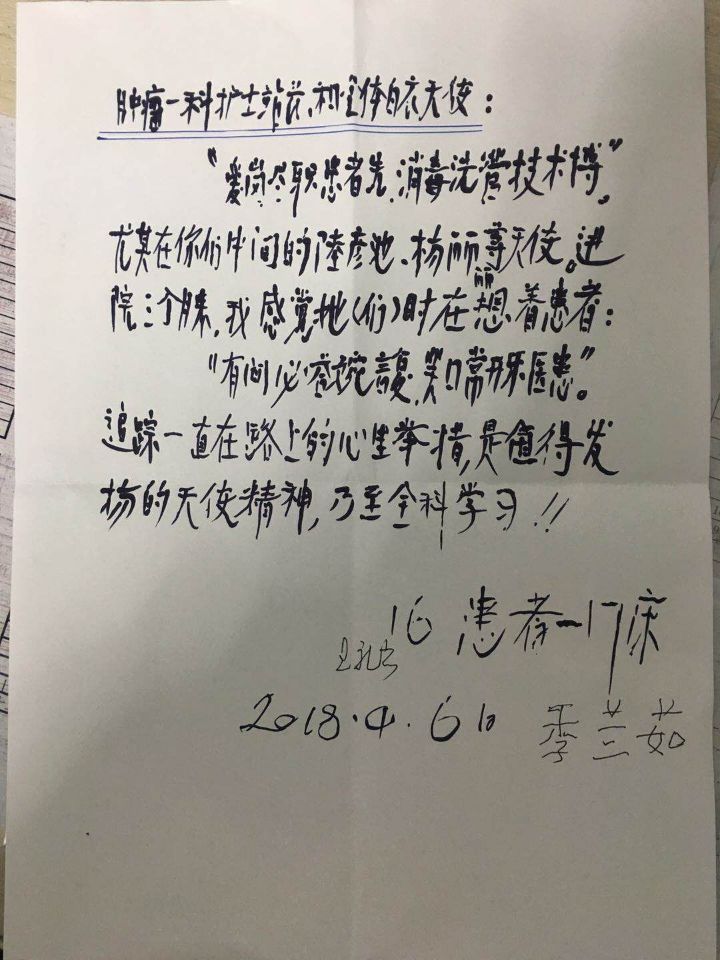 肿瘤一科护士站、和全体白衣天使：
“爱岗尽职患者先，消毒洗管技术博”。
尤其在你们中间的陆彦池、杨丽等天使。进
丽
院三个月来，我感觉她(们)时在想着患者：
“有问必答 ，笑口常开乐医患”。
追踪一直在路上的心生举措，是值得发
扬的天使精神，乃至全科学习！！
16 患者一17床
2018.4.6日 季兰茹